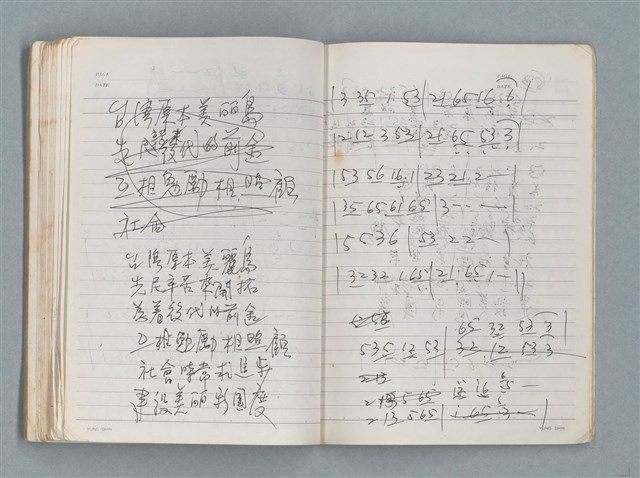 PAGE
DATE
台湾原本美麗島
先民 後代的前途
互相勉勵相照顧
社會
台湾原本美麗島
先民辛苦來開拓
為着後代的前途
互相勉勵相照顧
社會時常求進步
建設美麗新國度
PAGE
DATE
|3 35 1 53|21 65 16 6|
|12 12 3 53|21 65 53 3|
|53 56 16 1|23 21 2 — |
|35 65 61 65|3 — — — |
|5 5 3 6|53 2 2 — |
|32 32 1 65|21 65 1 — ||
65 32 53 3
535 13 53|32 12 53 3
2 13 5 65